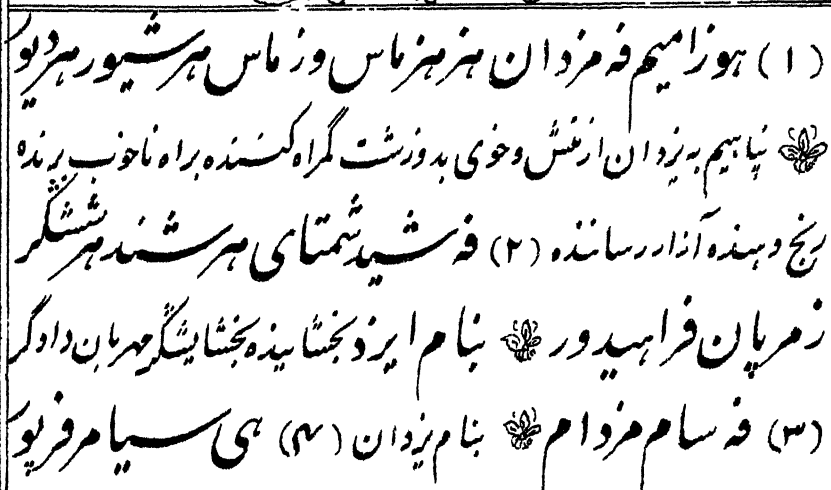 (۱) هوزامیم فه مزدان هزهزماس وزماس هرشیور هردیور
پناهیم به یزدان از منش و خوی بد و زشت گمراه کننده براه ناخوب برنده
رنج دهنده آزار رساننده (۲) فه شید شمتای هرشنده هرششگر
زمرپان فراهیدور بنام ایزد بخشاینده بخشایشگر مهربان دادگر
(۳) فه سام مزدام بنام یزدان (۴) هی سیامر فرپور